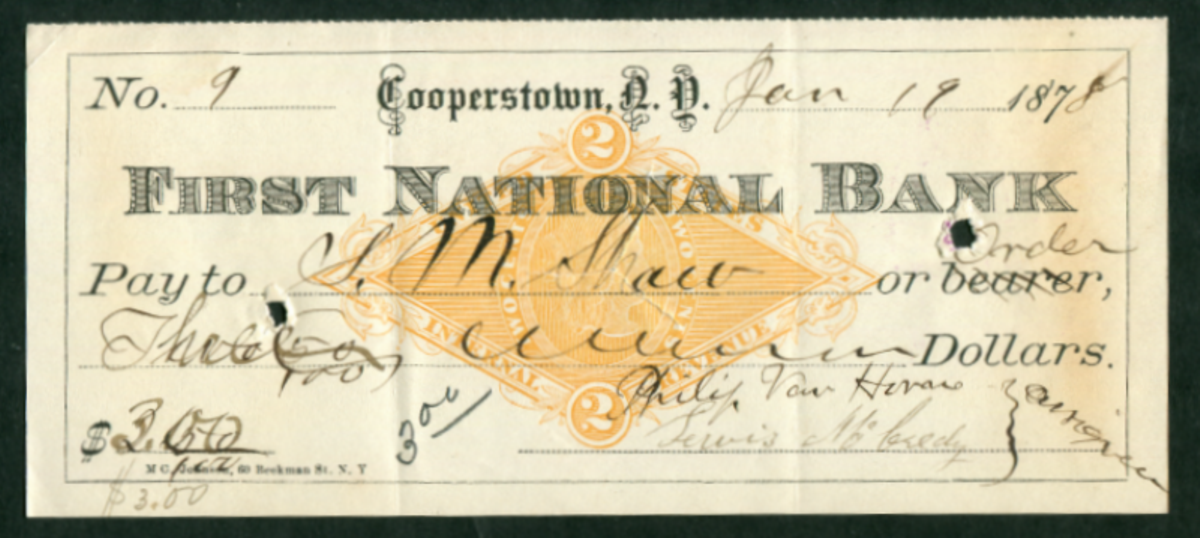 No. 9 Cooperstown, N. Y. Jan 19 1878
2
TWO CENTS
FIRST NATIONAL BANK
Order
Pay to S. M. Shaw or bearer,
Three 00/100 Dollars.
INTERNAL REVENUE
2
Philip Van Horne
$ 3.00/100 3 00 Lewis McCredy
M C. Johnson, 60 Beekman St. N. Y
$ 3.00